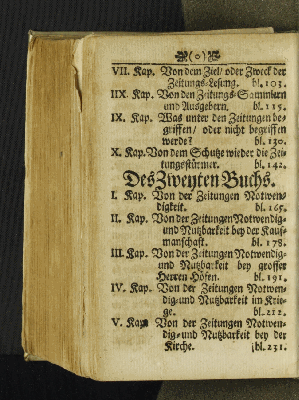 (o)
VII. Kap. Von dem Ziel/ oder Zweck der
Zeitungs-Lesung. bl. 103.
IIX. Kap. Von den Zeitungs-Sammlern
und Ausgebern. bl. 115.
IX. Kap. Was unter den Zeitungen be-
griffen/ oder nicht begriffen
werde? bl. 130.
X. Kap. Von dem Schutze wieder die Zei-
tungsstürmer. bl. 142.
Des Zweyten Buchs.
I. Kap. Von der Zeitungen Notwen-
digkeit. bl. 165.
II. Kap. Von der Zeitungen Notwendig-
und Nutzbarkeit bey der Kauf-
manschaft. bl. 178.
III. Kap. Von der Zeitungen Notwendig-
und Nutzbarkeit bey grosser
Herren Höfen. bl. 191.
IV. Kap. Von der Zeitungen Notwen-
dig- und Nutzbarkeit im Krie-
ge. bl. 212.
V. Kap. Von der Zeitungen Notwen-
dig- und Nutzbarkeit bey der
Kirche. bl. 231.